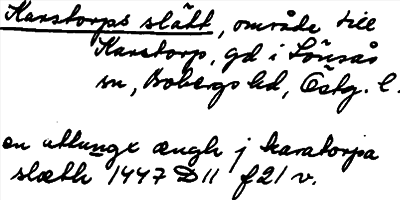 Karstorps slätt, område till
Karstorp, gd i Lönsås
sn, Bobergs hd, Östg. l.
en attunge ængh j karstorpa
slæth 1447 D 11 f 21 v.